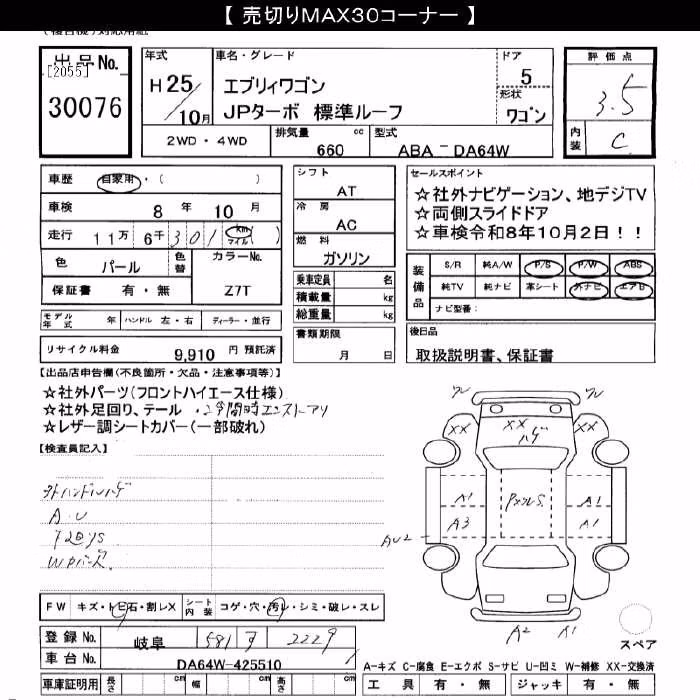 【 売切りMAX30コーナー 】
出品No.
[2055]
30076
年式
H25/10月
車名・グレード
エブリィワゴン
JPターボ 標準ルーフ
ドア
5
形状
ワゴン
評価点
3.5
内装
C
2WD・4WD
排気量 660 cc
型式 ABA-DA64W
車歴 自家用・( )
車検 8年 10月
走行 11万 6千 301 km マイル ( )
色 パール
色替
カラーNo. Z7T
保証書 有・無
モデル年式 年
ハンドル 左・右
ディーラー・並行
リサイクル料金 9,910 円 預託済
シフト
AT
冷房
AC
燃料
ガソリン
乗車定員 名
積載量 kg
総重量 kg
書類期限
月 日
セールスポイント
☆社外ナビゲーション、地デジTV
☆両側スライドドア
☆車検令和8年10月2日!!
装備品
S/R 純A/W P/S P/W ABS
純TV 純ナビ 革シート 外ナビ エアB
ナビ型番:
後日品
取扱説明書、保証書
【出品店申告欄(不良箇所・欠品・注意事項等)】
☆社外パーツ(フロントハイエース仕様)
☆社外足回り、テール
☆レザー調シートカバー(一部破れ)
【検査員記入】
外ハンドルハゲ
AU
FW キズ・トビ石・割レX
シート内装 コゲ・穴・汚レ・シミ・破レ・スレ
登録No. 岐阜 581 2229
車台No. DA64W-425510
車庫証明用 長さ cm 幅 cm 高さ cm
ワレ ワレ
XX XX XX
ハゲ
A1 A1
A3 A1
AU2
A2 A1
スペア
A-キズ C-腐食 E-エクボ S-サビ U-凹ミ W-補修 XX-交換済
工具 有・無 ジャッキ 有・無